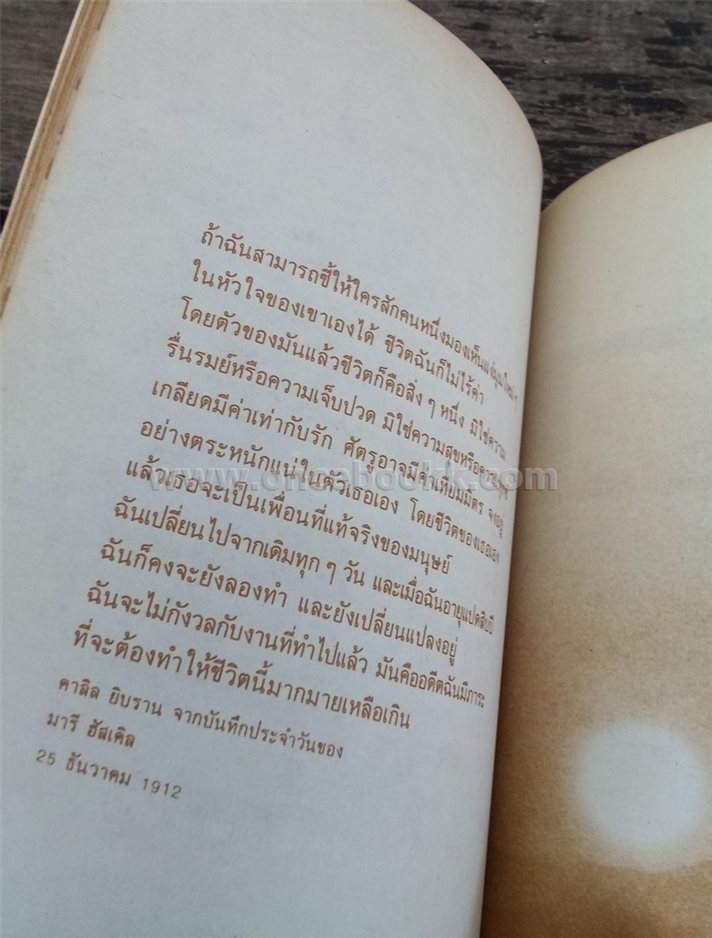 ถ้าฉันสามารถชี้ให้ใครสักคนหนึ่งมองเห็นแง่มุมใหม่ๆ
ในหัวใจของเขาเองได้ ชีวิตฉันก็ไม่ไร้ค่า
โดยตัวของมันแล้วชีวิตก็คือสิ่งๆ หนึ่ง มิใช่ความ
รื่นรมย์หรือความเจ็บปวด มิใช่ความสุขหรือความทุกข์
เกลียดมีค่าเท่ากับรัก ศัตรูอาจมีค่าเทียมมิตร จงอยู่
อย่างตระหนักแน่ในตัวเธอเอง โดยชีวิตของเธอเอง
แล้วเธอจะเป็นเพื่อนที่แท้จริงของมนุษย์
ฉันเปลี่ยนไปจากเดิมทุกๆ วัน และเมื่อฉันอายุแปดสิบปี
ฉันก็คงจะยังลองทำ และยังเปลี่ยนแปลงอยู่
ฉันจะไม่กังวลกับงานที่ทำไปแล้ว มันคืออดีตฉันมีภาระ
ที่จะต้องทำให้ชีวิตนี้มากมายเหลือเกิน
คาลิล ยิบราน จากบันทึกประจำวันของ
มารี ฮัสเคิล
25 ธันวาคม 1912
www.oncebookk.com